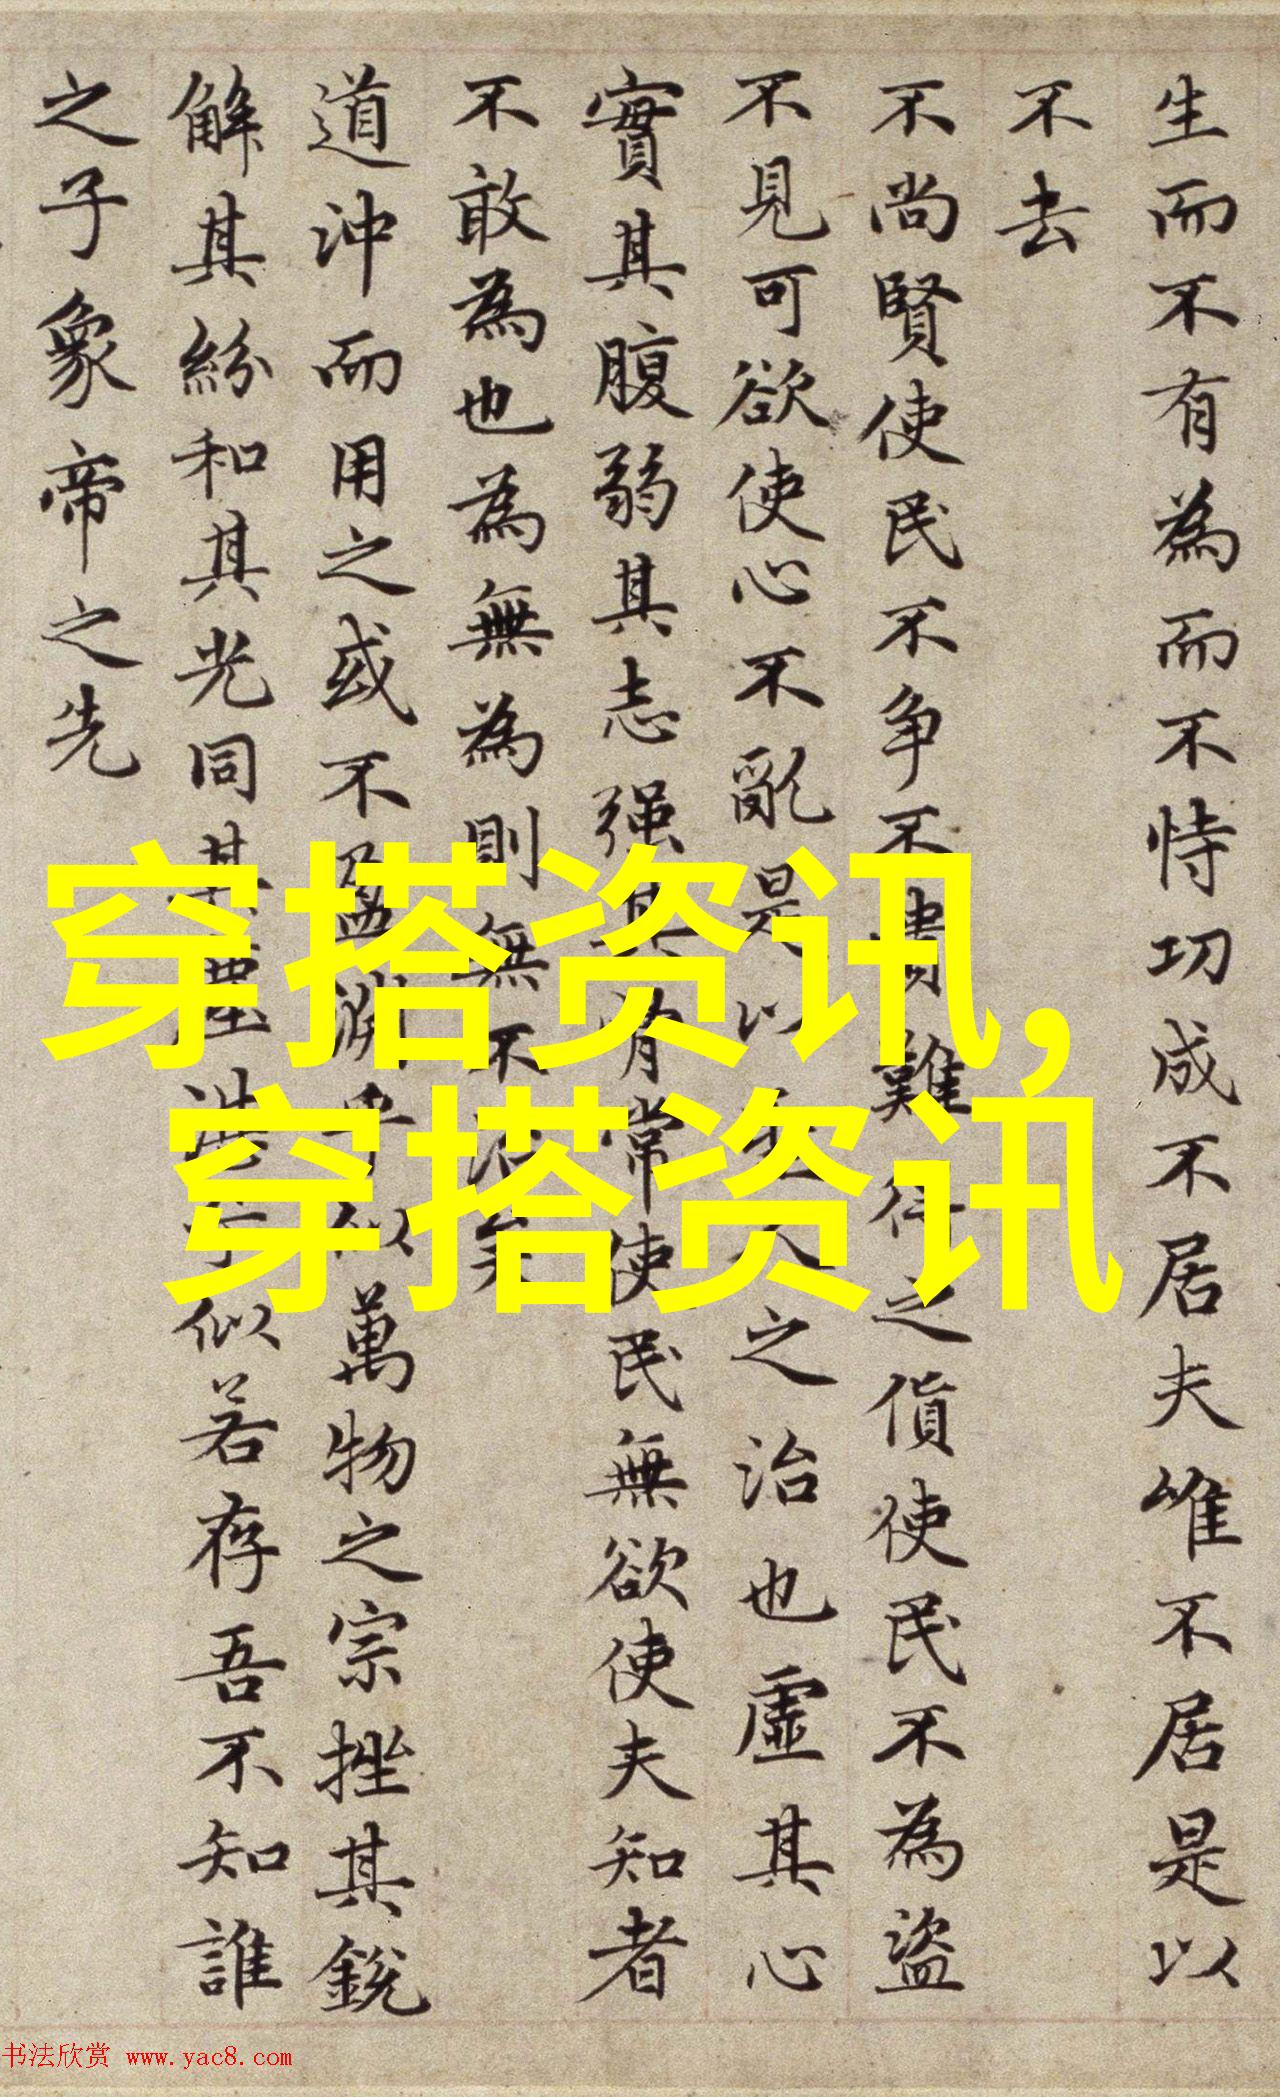 生而不有為而不恃功成不居夫唯不居是以
不去
不尚賢使民不争不貴難得之貨使民不為盜
不見可欲使心不亂是以聖人之治也虛其心
實其腹弱其志强其骨常使民無欲使夫知者
不敢為也為無為則無不治矣
道沖而用之或不盈淵乎似萬物之宗挫其銳
解其紛和其光同其塵湛乎似若存吾不知誰
之子象帝之先
穿搭资讯,
穿搭资讯
书法欣赏 www.yac8.com